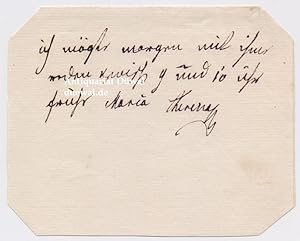 ich möchte morgen mit ihme
reden zwisch 9 und 10 uhr
fruhe Maria Theresia